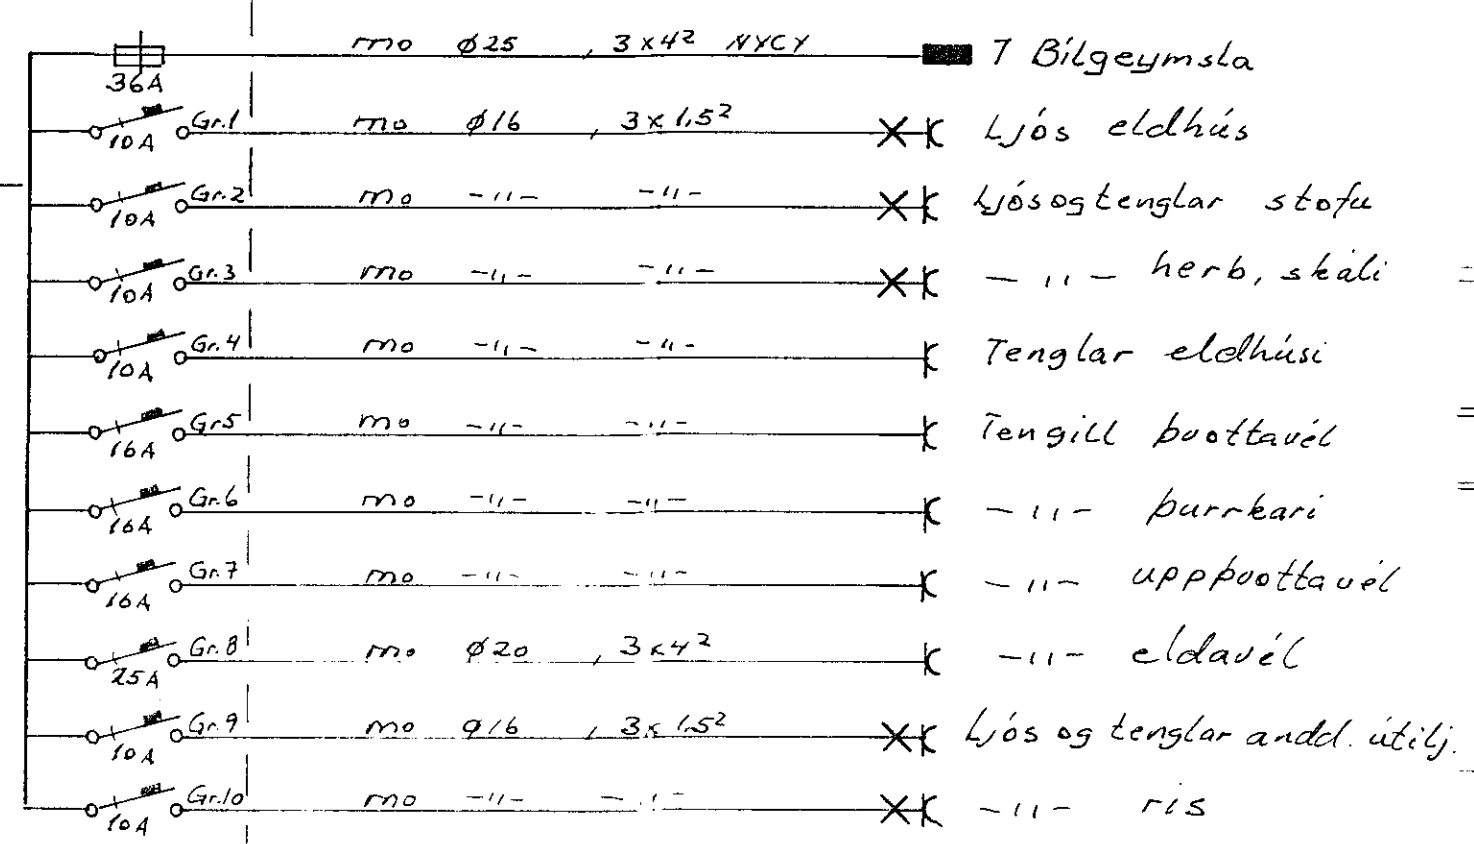 36A mo ø25 , 3x4² NYCY T Bílgeymsla
10A Gr.1 mo ø16 , 3x1,5² Ljós eldhús
10A Gr.2 mo -"- -"- Ljós og tenglar stofu
10A Gr.3 mo -"- -"- -"- herb, skáli
10A Gr.4 mo -"- -"- Tenglar eldhúsi
16A Gr5 mo -"- -"- Tengill þvottavél
16A Gr.6 mo -"- -"- -"- þurrkari
16A Gr.7 mo -"- -"- -"- uppþvottavél
25A Gr.8 mo ø20 , 3x4² -"- eldavél
10A Gr.9 mo ø16 , 3x1,5² Ljós og tenglar andd. útilj.
10A Gr.10 mo -"- -"- -"- ris